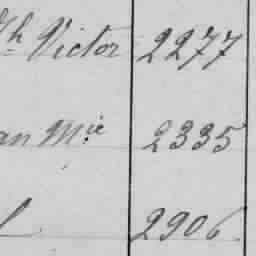 th Victor 2277
an Mie 2335
2906